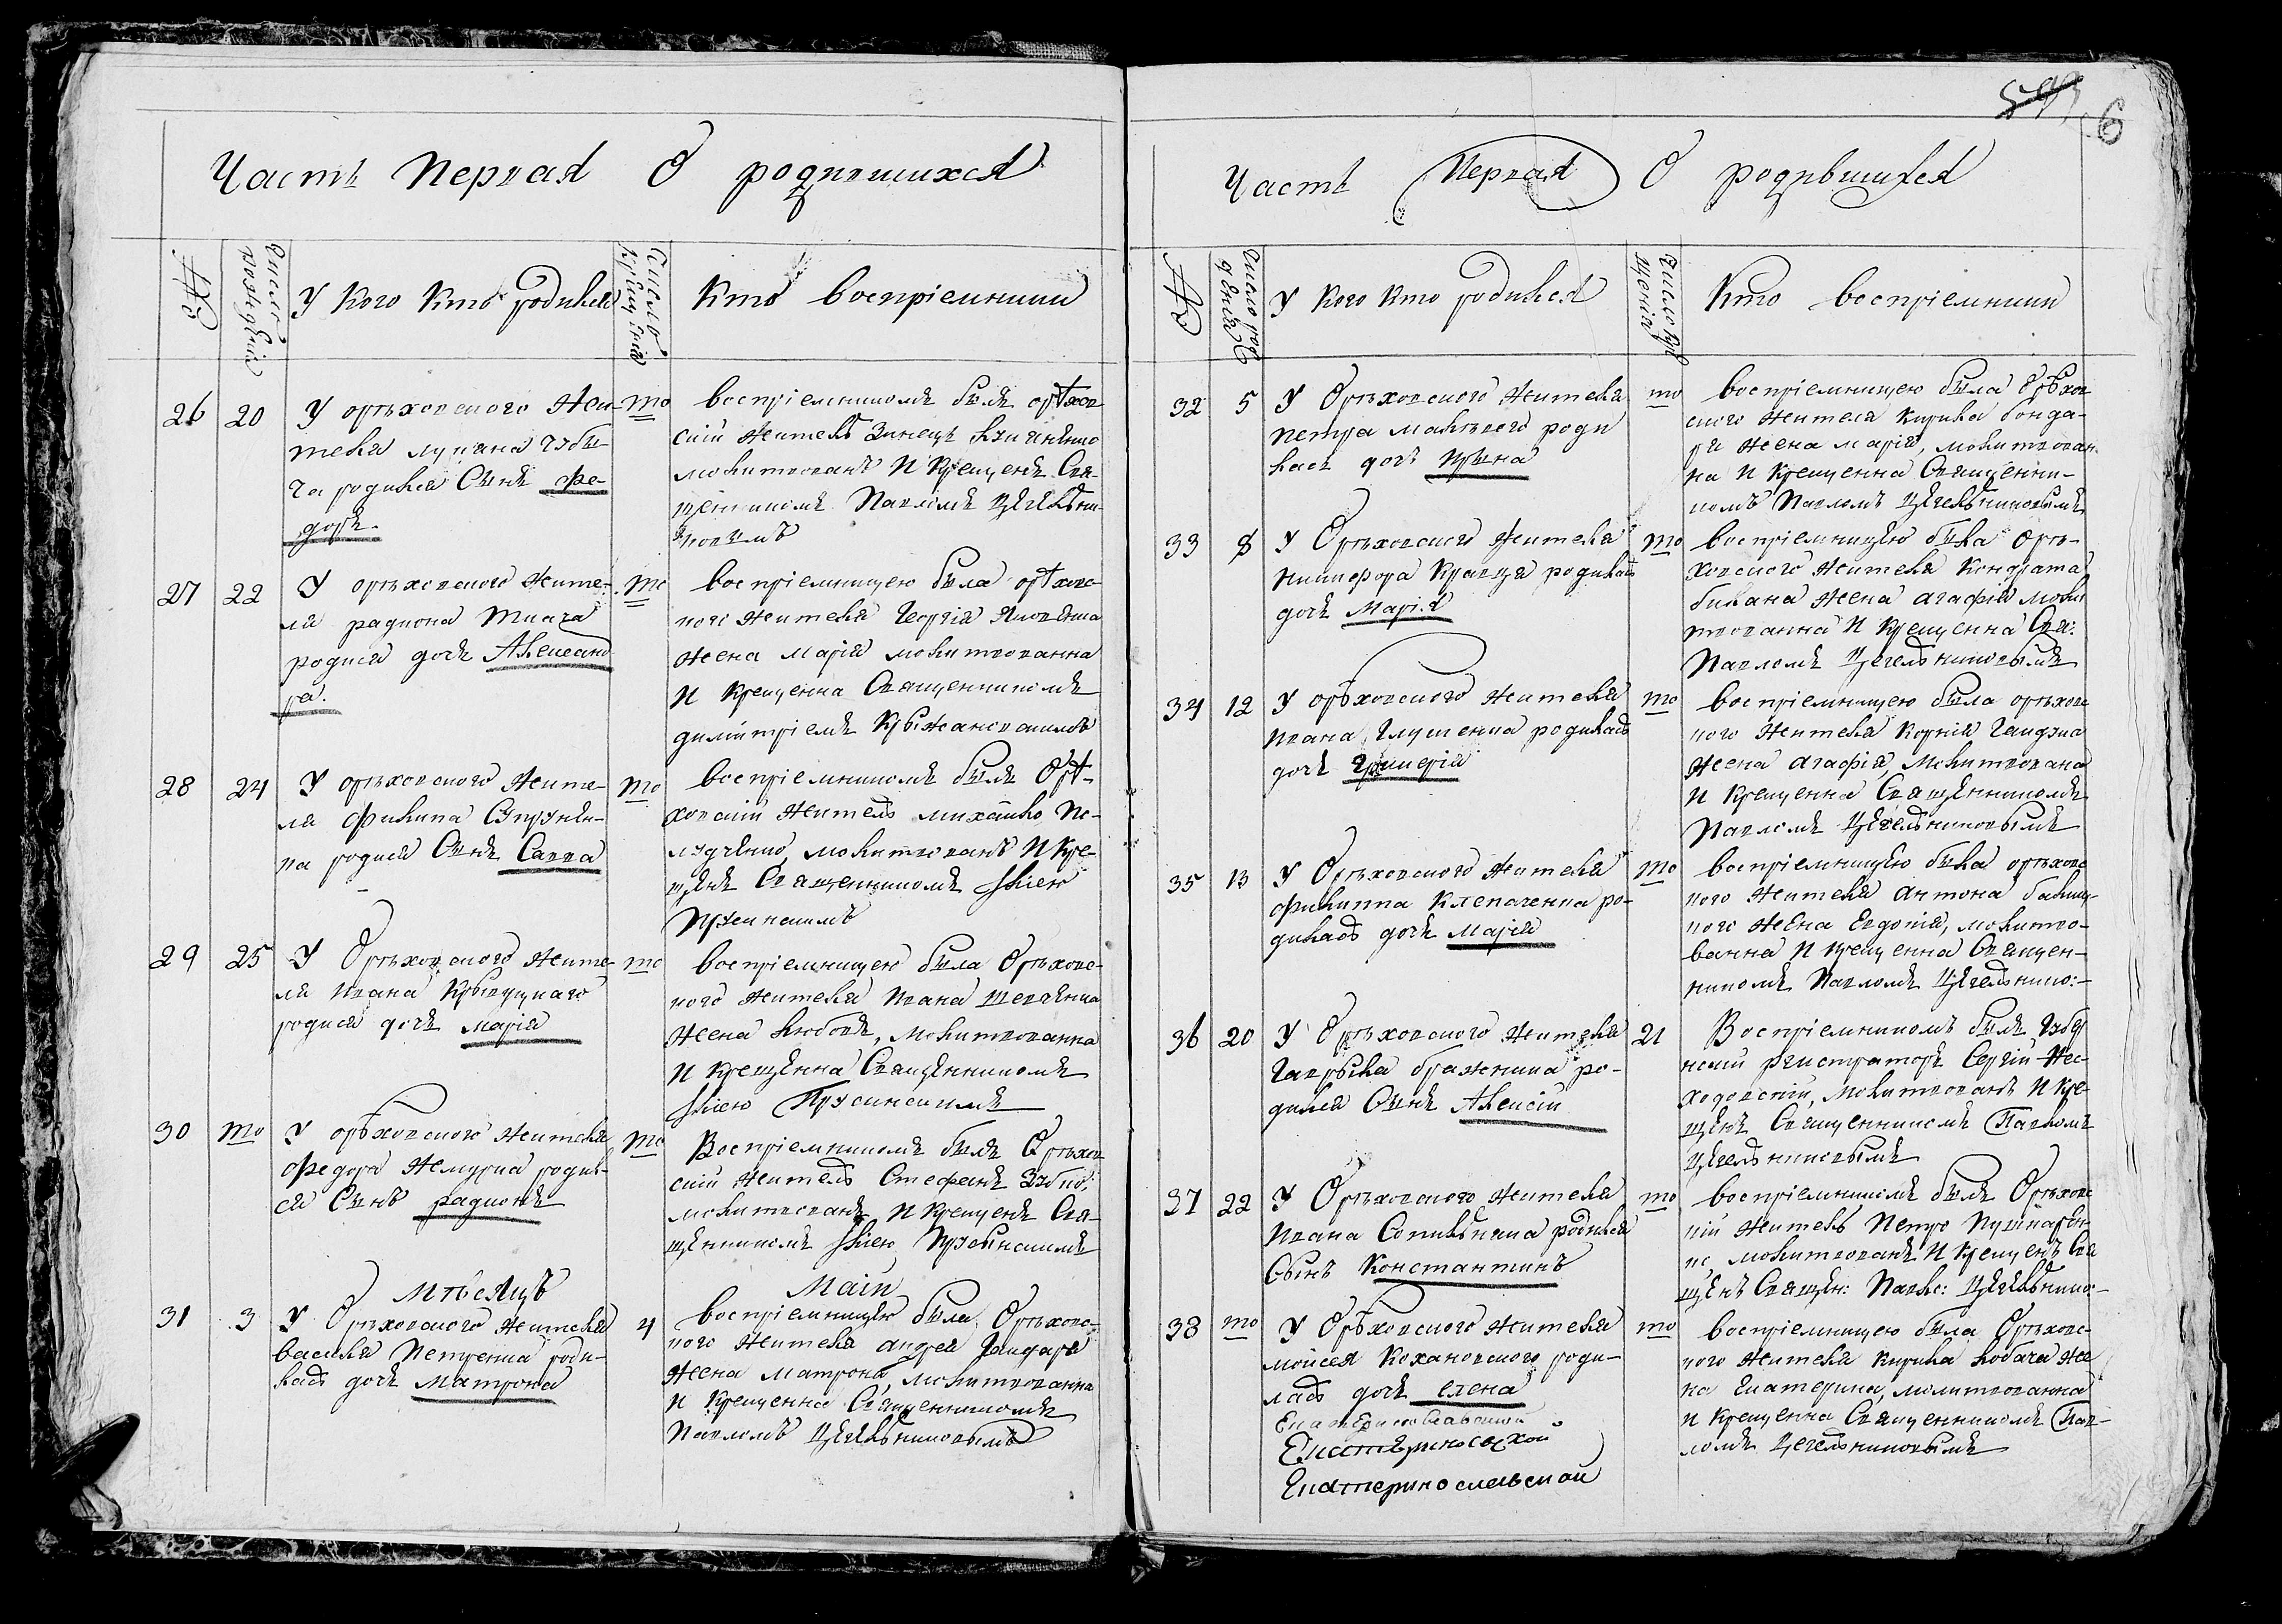 Часть Первая О родившихся
№
Число рождения
У кого кто родился
Число крещения
Кто воспріемники
26 20 У орѣховского жи-
теля лукяна чубы-
ча родился Сынъ Фе-
доръ.
то
воспріемникомъ былъ орѣхов
скій житель
молитвованъ и крещенъ Свя-
щенникомъ Павломъ Цегельни-
ковымъ
27 22 У орѣховского жите-
ля радиона Ткача
родися дочь Александ
ра.
то
воспріемницею была орѣховс-
кого жителя Георгія Яковенка
жена Марія молитвованна
и крещенна Священникомъ
димитріемъ Крыжановскимъ
28 24 У орѣховского жите-
ля филипа Супрунен-
ка родися Сынъ Савва
то
воспріемникомъ былъ Орѣ-
ховскій житель михайло По-
лудченко, молитвованъ и кре-
щенъ Священникомъ Іліею
Прусинскимъ
29 25 У Орѣховского жите-
ля Ивана Крывуцкаго
родися дочь марія
то
воспріемницею была Орѣховс-
кого жителя Ивана шевченка
жена любовь, молитвованна
и крещенна Священникомъ
Іліею Прусинскимъ
30 то У орѣховского жителя
федора Жемурка родив-
ся Сынъ радионъ
то
Воспріемникомъ былъ Орѣхов
скій житель Стефанъ Зубко:
молитвованъ и крещенъ Свя-
щенникомъ Іліею Прусынскимъ
Мѣсяцъ Маій
31 3 У Орѣховского жителя
василя Петренка роди-
лась дочь матрона
4
воспріемницею была Орѣховс-
кого жителя андрея Гандаря
жена матрона, молитвованна
и крещенна Священникомъ
Павломъ Цегельниковымъ
6
Часть Первая О родившихся
№
Число рождения
У кого кто родился
Число крещенія
Кто воспріемники
32 5 У Орѣховского жителя
петра маковского роди
лась дочь Ирына
то
воспріемницею была Орѣхов
ского жителя кирила бонда-
ря жена марія, молитвован-
на и крещенна Священни-
комъ Павломъ Цегельниковымъ
33 8 У Орѣховского жителя
никифора Кравця родилась
дочь Марія
то
воспріемницею была Орѣ-
ховского жителя кондрата
билана жена агафія моли
твованна и крещенна Свя:
Павломъ Цегельниковымъ
34 12 У орѣховского жителя
Ивана Глущенка родилась
дочь Гликерія
то
воспріемницею была орѣховс
кого жителя корнія Гандзюка
жена агафія, Молитвована
и крещенна Священникомъ
Павломъ Цегельниковымъ
35 13 У Орѣховского жителя
филиппа Клепаченка ро-
дилась дочь Марія
то
воспріемницею была орѣховс
кого жителя антона балиц-
кого жена Евдокія, молитво-
ванна и крещенна Священ-
никомъ Павломъ Цегельнико:-
36 20 У Орѣховского жителя
Гаврыла бражника ро-
дился Сынъ Алексій
21
Воспріемникомъ былъ Губер
нскій регистраторъ Сергій Нес-
ходовскій, молитвованъ и кре
щенъ Священникомъ Павломъ
Цегельниковымъ
37 22 У Орѣховского жителя
Ивана Сопильника родился
Сынъ Константинъ
то
воспріемникомъ былъ Орѣховс
кій житель Петро Пушкарен-
ко, молитвованъ и крещенъ Свя
щенъ Священ: Павло: Цегельнико:-
38 то У Орѣховского жителя
мойсея Кохановского роди-
лась дочь елена
то
воспріемницею была Орѣховс-
кого жителя кирила лобача же
на Екатерина, молитвованна
и крещенна Священникомъ Пав-
ломъ Цегельниковымъ
Екатеринославской
Екатеринославской
Екатеринославской